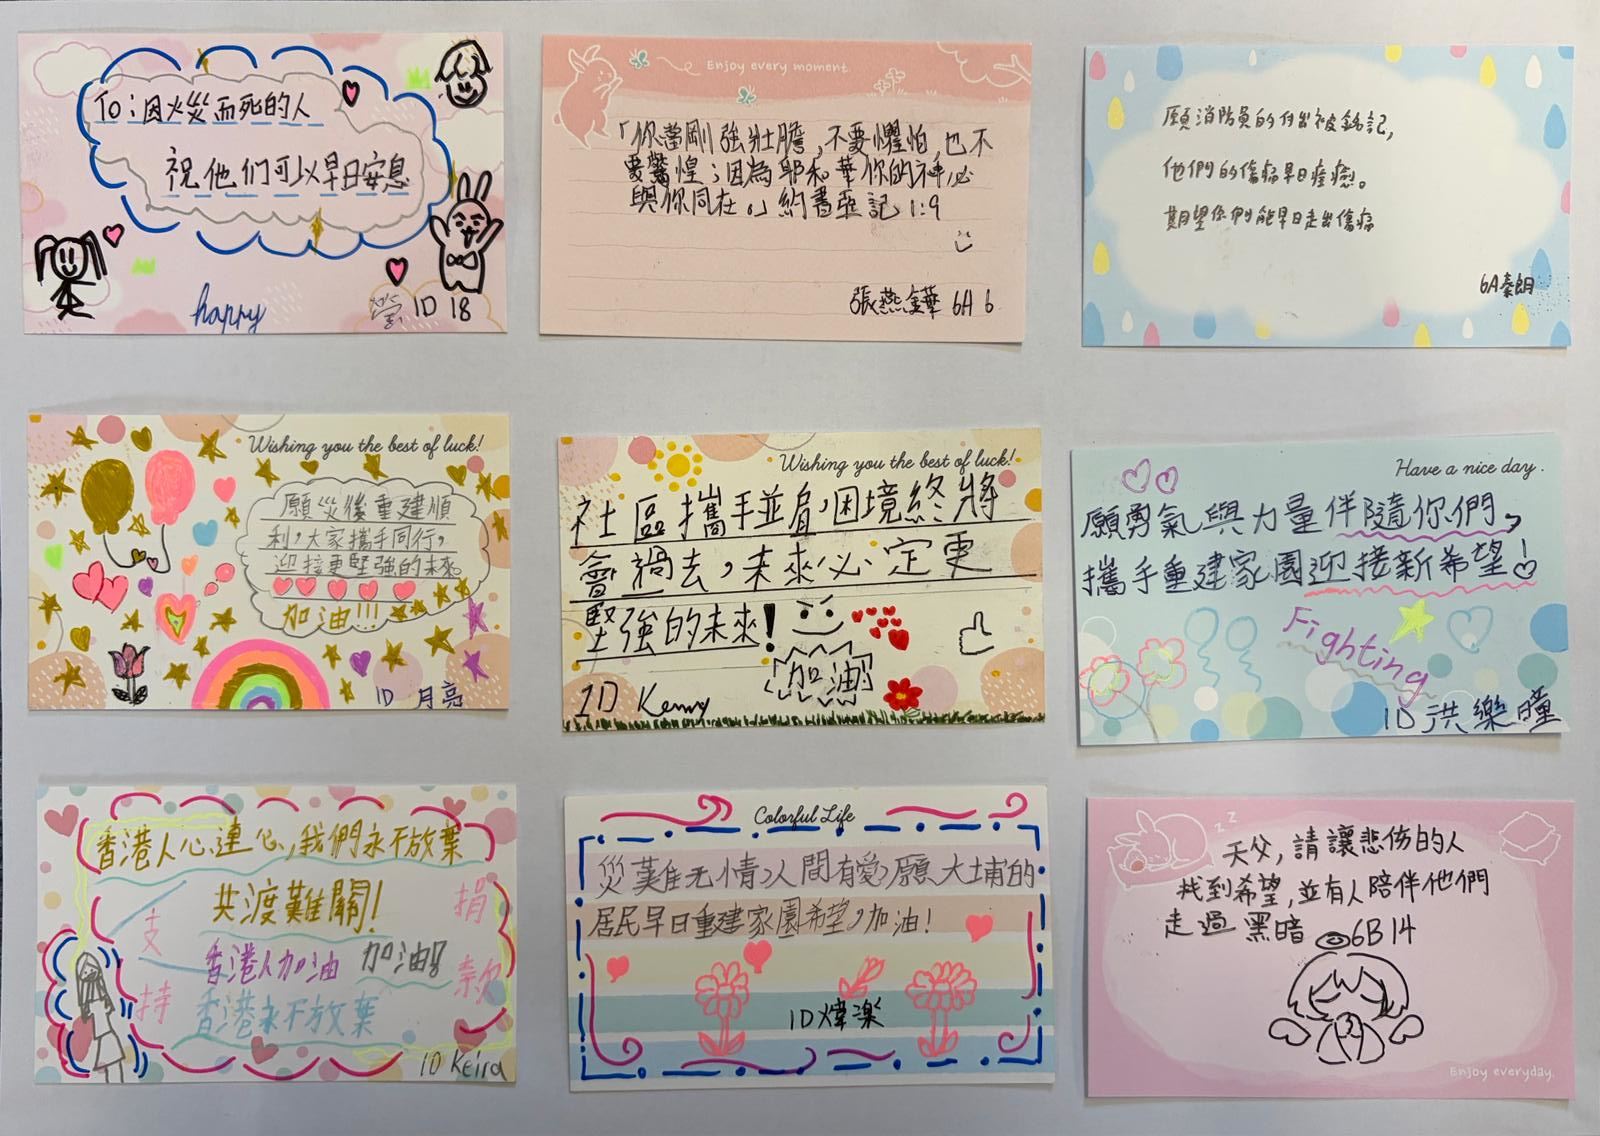 To:因火災而死的人
祝他们可以早日安息
happy
1D 18
Enjoy every moment.
「你當剛強壯膽,不要懼怕,也不
要驚惶;因為耶和華你的神必
與你同在。」約書亞記 1:9
張燕鏵 6A 6
願消防員的付出被銘記,
他們的傷病早日痊癒。
期望你們能早日走出傷痛
6A秦朗
Wishing you the best of luck!
願災後重建順
利,大家攜手同行,
迎接更堅強的未來
加油!!!
1D 月亮
Wishing you the best of luck!
社區攜手並肩,困境終將
會過去,未來必定更
堅強的未來!
加油
1D Kenny
Have a nice day.
願勇氣與力量伴隨你們,
攜手重建家園迎接新希望!
Fighting
1D 洪樂瞳
香港人心連心,我們永不放棄
共渡難關!
支持
捐款
香港人加油 加油!!
香港永不放棄
1D Keira
Colorful Life
災難无情,人間有愛,願大埔的
居民早日重建家園希望,加油!
1D煒楽
天父,請讓悲伤的人
找到希望,並有人陪伴他們
走過黑暗 6B14
Enjoy everyday.